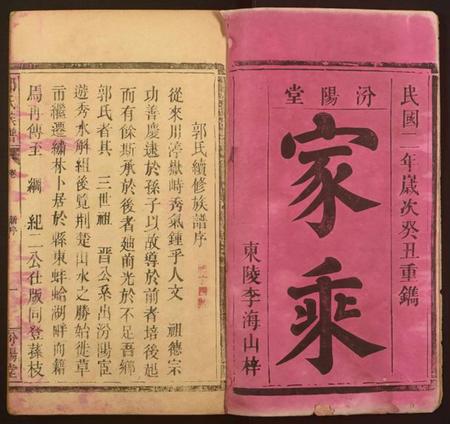 民國二年歲次癸丑重鐫
汾陽堂
家乘
東陵李海山梓
郭氏續修族譜序
從來川渟嶽峙秀氣鍾乎人文 祖德宗
功善慶逮於孫子以故導於前者培後起
而有餘斯承於後者廸前光於不足吾鄉
郭氏者其 三世祖 晋公系出汾陽宦
遊秀水解組後覽荆楚山水之勝始徙草
市繼遷繡林卜居於縣東蚌蛤湖畔而籍
焉再傳至 綱 紀二公仕版同登蓀枝
郭氏宗譜
卷
一
汾陽堂